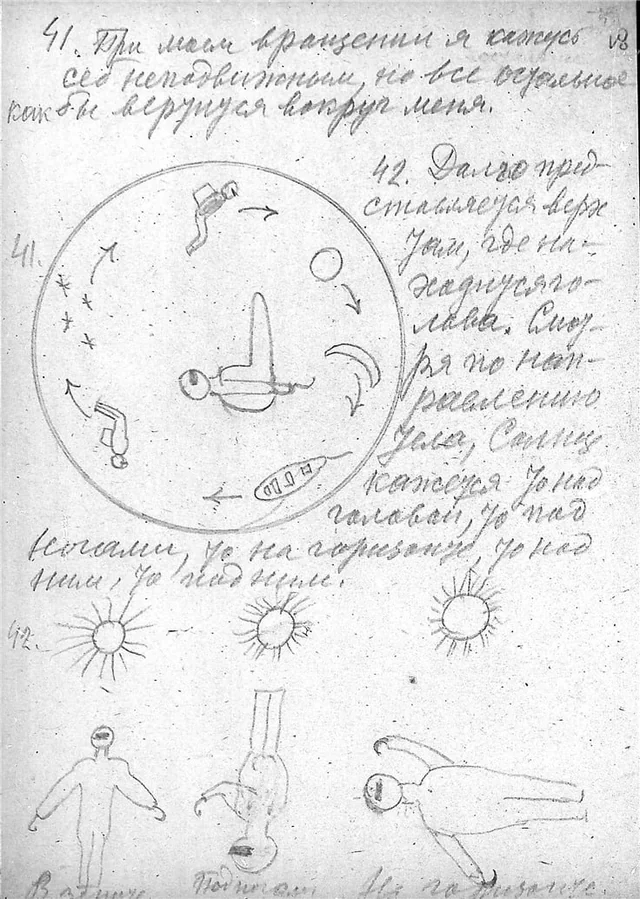 41. При моем вращении я кажусь
себе неподвижным, но все остальное
как бы вертится вокруг меня.
41.
42. Далее пред-
ставляется верх
там, где на-
ходится го-
лова. Смот-
ря по нап-
равлению
тела, Солнце
кажется то над
головой, то под
ногами, то на горизонте, то над
ним, то под ним.
42.
Под ногами На горизонте.